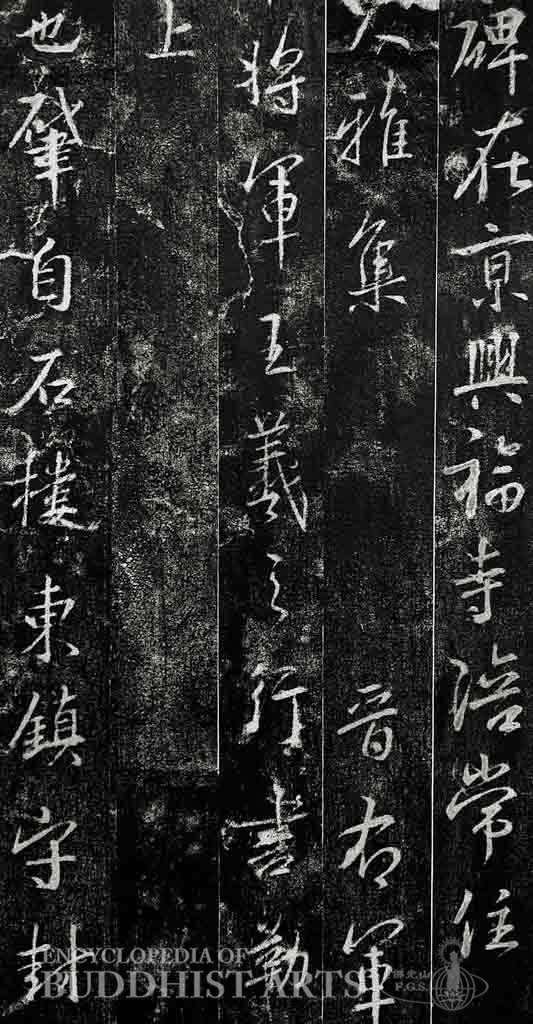 碑在京興福寺陪常住
大雅集 晉右軍
將軍王羲之行書勒
上
也肇自石樓東鎮守封
ENCYCLOPEDIA OF
BUDDHIST ARTS
佛光山
F.G.S.